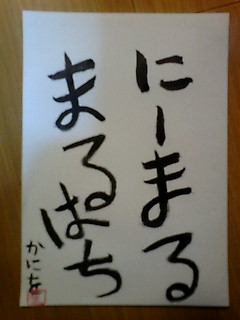 にーまる
まるはち
かにを